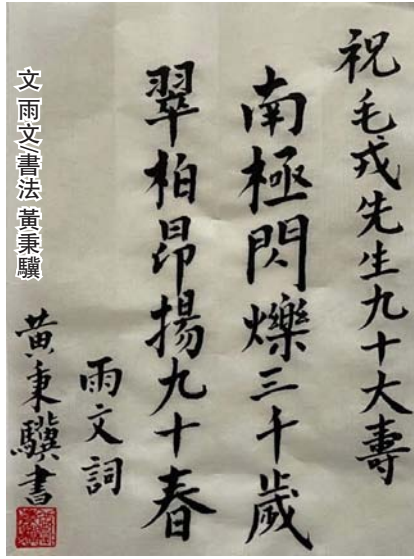 祝毛戎先生九十大壽
南極閃爍三千歲
翠柏昂揚九十春
雨文詞
黃秉驥書
文 雨文/書法 黃秉驥